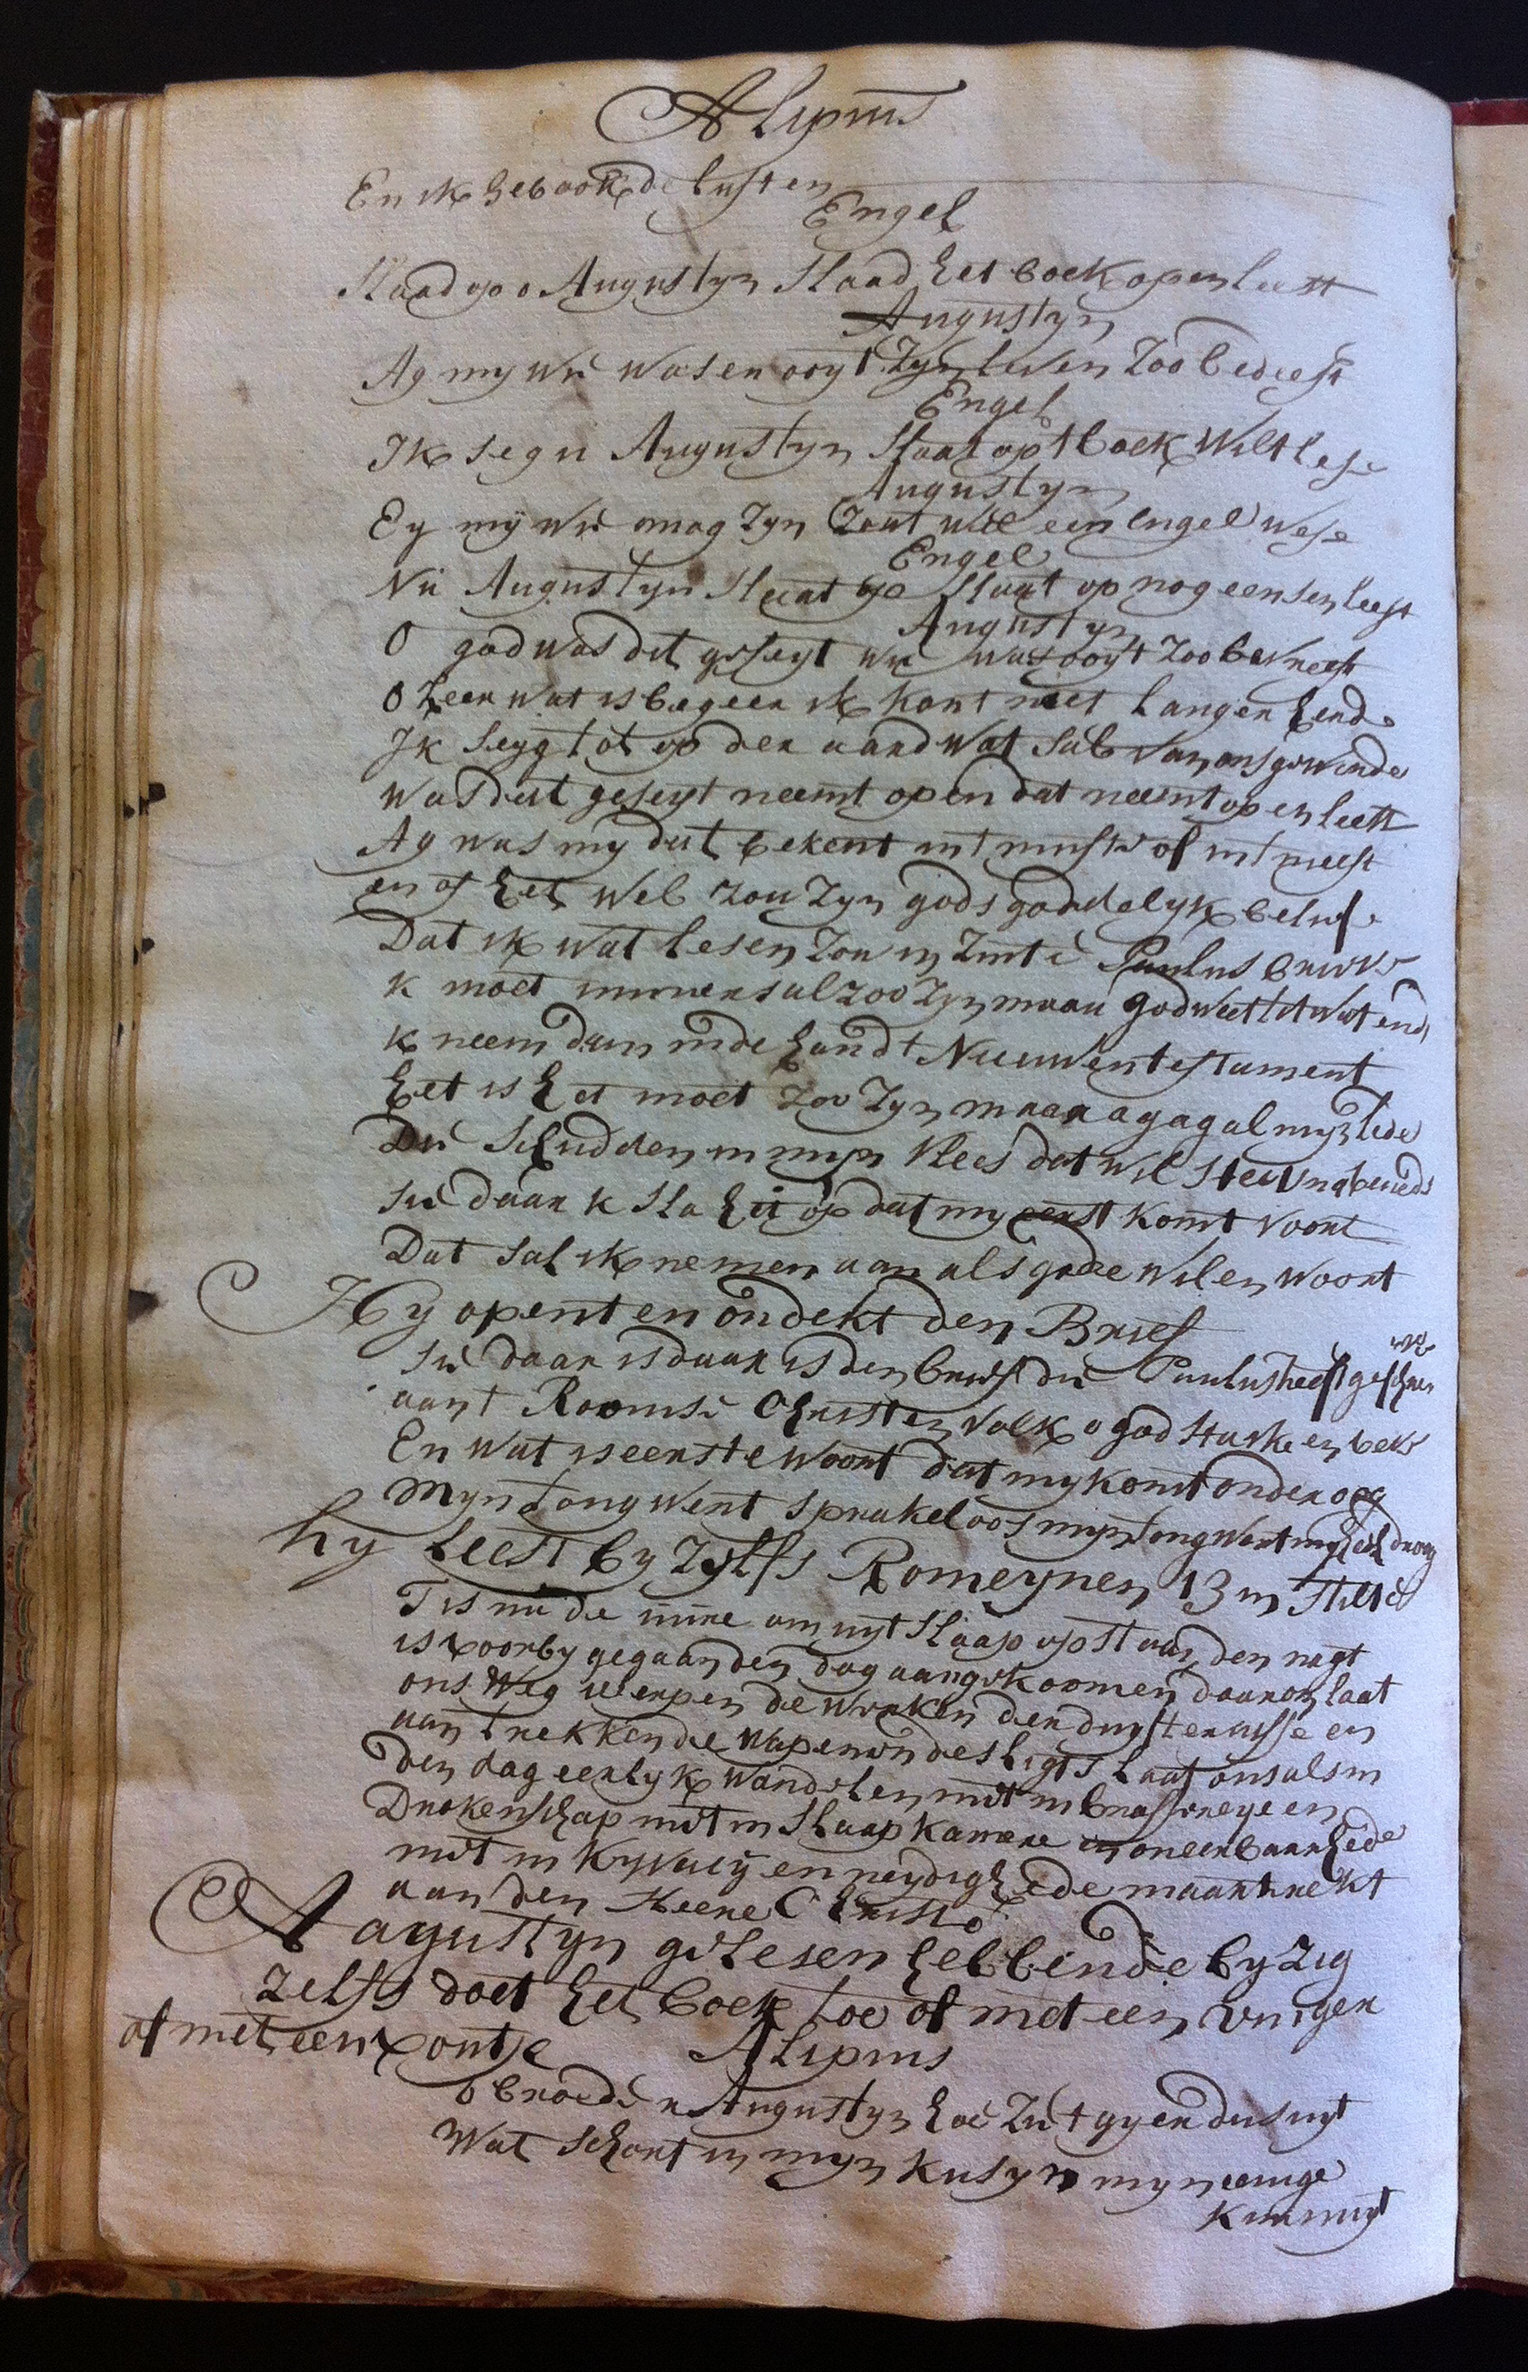 Alipius
En ik heb ook de lusten
Engel
Staad op o Augustyn Staad het boek open leest
Augustyn
Ag my wie was er ooyt Zyn leven Zoo bedeest
Engel
Ik seg u Augustyn Staat op t boek Wilt lese
Augustyn
Ey my wie mag Zyn Zout wel een Engel wese
Engel
Nu Augustyn Staat op Staat op nog eens en leest
Augustyn
O god was dit geseyt wie was ooyt Zoo bevreest
O heer wat is begeer ik kant niet langer herde
Ik segg tot op der aard wat sal van ons gewerde
Was dit geseyt neemt open dat neemt op en leest
Ag was my dit bekent int minste of int meest
en of het wel zou Zyn gods goddelyk beliefe
Dat ik wat lesen Zou in Zinte Paulus brieve
k moet immers al zoo Zyn maar god weet wat end
k neem dan in de hand t Nieuwen testament
het is het moet zoo Zyn maar ag ag al myn lede
Die Schudden in myn Vlees dat wil
Sie daar k sla het op dat my eerst komt voort
Dat sal ik nemen aan als gods wil en woort
Hy opent en ondekt den Brief
Sie daar is daar is den brief die Paulus heeft geschreve
aant Roomse Christen Volk o god sterke en beve
En wat is eerste woort dat my komt onder oog
Myn tong wert sprakeloos myn tong wert my heel droog
hy leest by Zylfs Romeynen 13 in Stilte
T is nu de uure om uyt slaap opstaan den nagt
is voorby gegaan den dag aangekoomen daarom laat
ons Weg werpen de werken der duysternisse en
aan trekken de wapenen des ligts laat ons als in
den dag eerlyk wandelen niet in brasserneye en
Drokenschap niet in slaap kamere en oneerbaarhede
niet in kyvaeij en neydighede maar trekt
aan den Heere Christo
Aagustyn gelesen hebbende by zig
zelfs doet het boek toe of met een vinger
of met een pontje
Alipius
o broeder Augustyn hoe Ziet gy er dus uyt
Wat schort u myn kusyn myn eenige